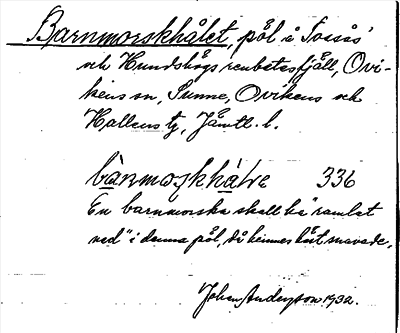 Barnmorskhålet, pöl i Sösiös'
och Hundshögs renbetesfjäll, Ovi-
kens sn, Sunne, Ovikens och
Hallens tg, Jämtl. l.
bànmoʂkhàlɛ 336
En barnmorska skall ha "ramlat
ned" i denna pöl, då hennes häst snavade.
Johan Anderzson 1932.